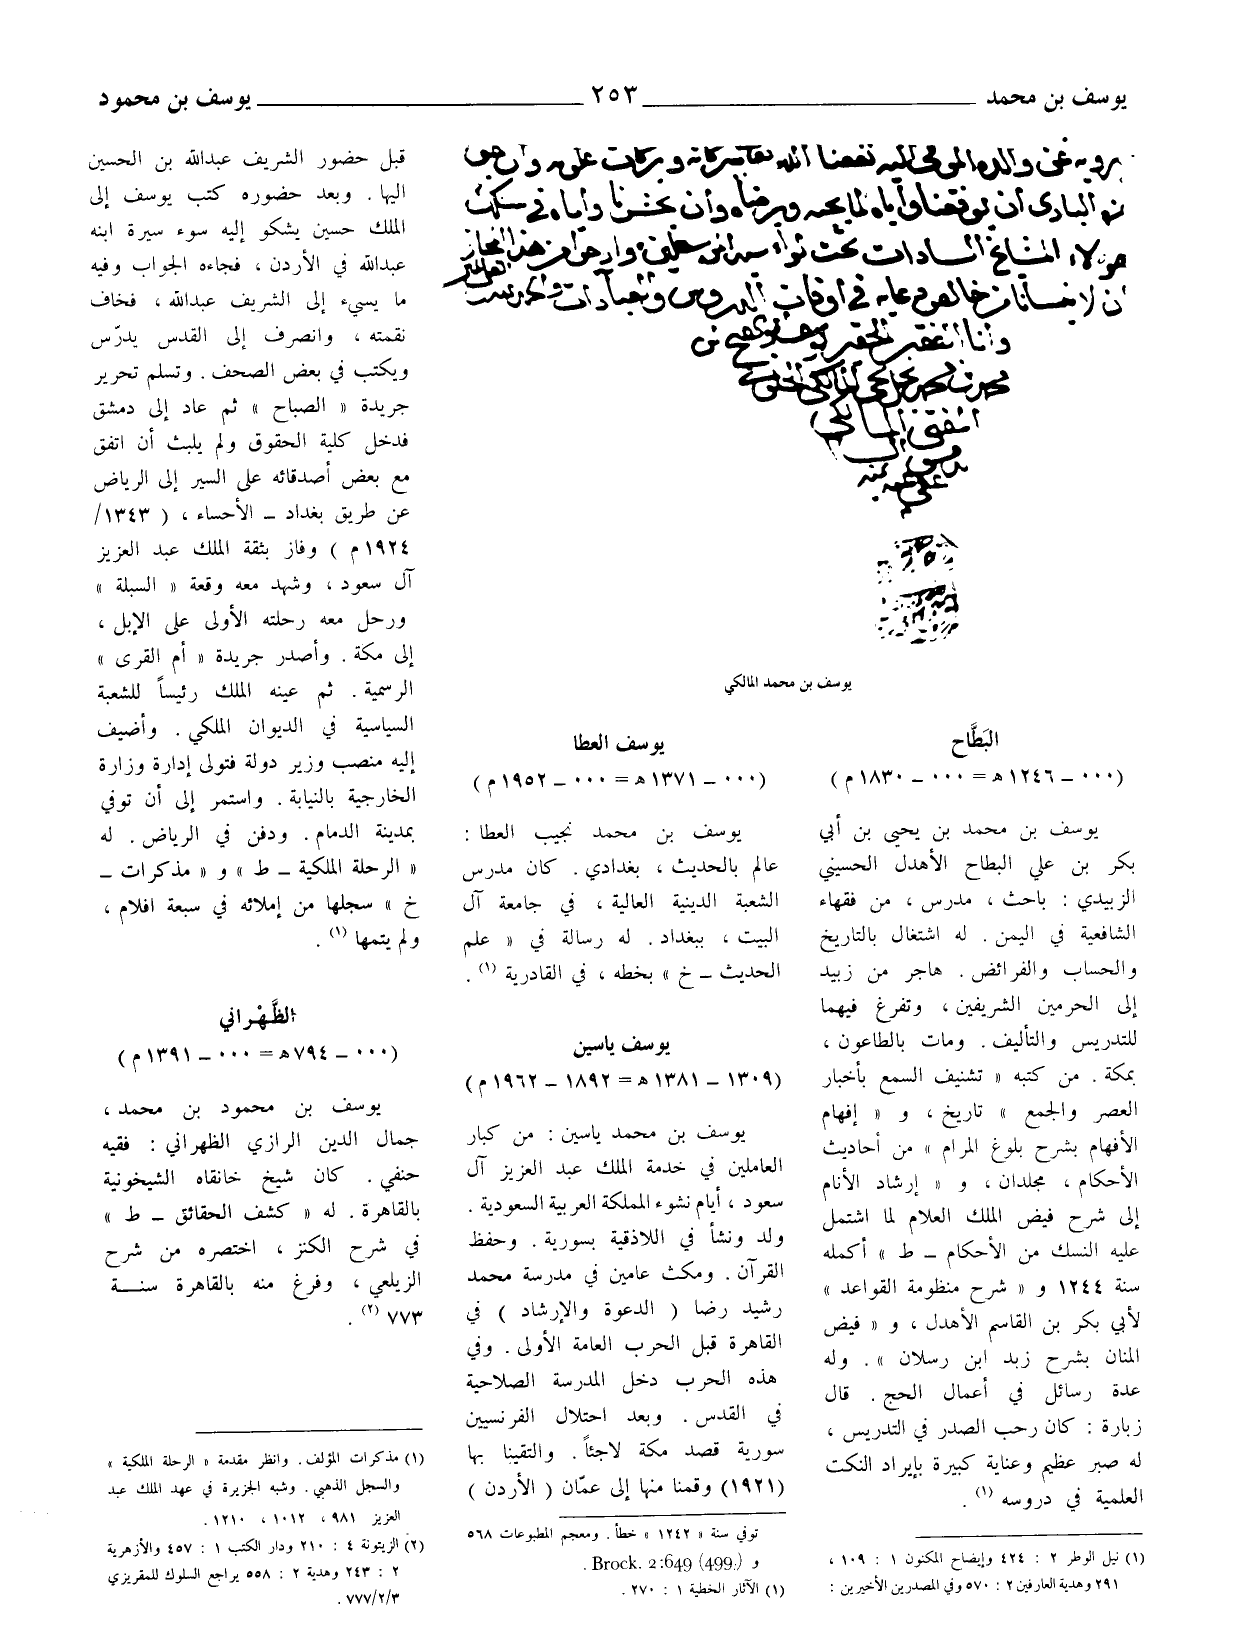 يوسف بن محمد ــــــ ٢٥٣ ــــــ يوسف بن محمود
يوسف بن محمد المالكي
البَطَّاح
(٠٠٠ ـ ١٢٤٦ هـ = ٠٠٠ ـ ١٨٣٠ م)
يوسف بن محمد بن يحيى بن أبي
بكر بن علي البطاح الأهدل الحسيني
الزبيدي : باحث ، مدرس ، من فقهاء
الشافعية في اليمن . له اشتغال بالتاريخ
والحساب والفرائض . هاجر من زبيد
إلى الحرمين الشريفين ، وتفرغ فيهما
للتدريس والتأليف . ومات بالطاعون ،
بمكة . من كتبه « تشنيف السمع بأخبار
العصر والجمع » تاريخ ، و « إفهام
الأفهام بشرح بلوغ المرام » من أحاديث
الأحكام ، مجلدان ، و « إرشاد الأنام
إلى شرح فيض الملك العلام لما اشتمل
عليه النسك من الأحكام ـ ط » أكمله
سنة ١٢٤٤ و « شرح منظومة القواعد »
لأبي بكر بن القاسم الأهدل ، و « فيض
المنان بشرح زبد ابن رسلان » . وله
عدة رسائل في أعمال الحج . قال
زبارة : كان رحب الصدر في التدريس ،
له صبر عظيم وعناية كبيرة بإيراد النكت
العلمية في دروسه (١) .
(١) نيل الوطر ٢ : ٤٢٤ وإيضاح المكنون ١ : ١٠٩ ،
٢٩١ وهدية العارفين ٢ : ٥٧٠ وفي المصدرين الأخيرين :
يوسف العطا
(٠٠٠ ـ ١٣٧١ هـ = ٠٠٠ ـ ١٩٥٢ م)
يوسف بن محمد نجيب العطا :
عالم بالحديث ، بغدادي . كان مدرس
الشعبة الدينية العالية ، في جامعة آل
البيت ، ببغداد . له رسالة في « علم
الحديث ـ خ » بخطه ، في القادرية (١) .
يوسف ياسين
(١٣٠٩ ـ ١٣٨١ هـ = ١٨٩٢ ـ ١٩٦٢ م)
يوسف بن محمد ياسين : من كبار
العاملين في خدمة الملك عبد العزيز آل
سعود ، أيام نشوء المملكة العربية السعودية .
ولد ونشأ في اللاذقية بسورية . وحفظ
القرآن . ومكث عامين في مدرسة محمد
رشيد رضا ( الدعوة والإرشاد ) في
القاهرة قبل الحرب العامة الأولى . وفي
هذه الحرب دخل المدرسة الصلاحية
في القدس . وبعد احتلال الفرنسيين
سورية قصد مكة لاجئاً . والتقينا بها
(١٩٢١) وقمنا منها إلى عمّان ( الأردن )
توفي سنة « ١٢٤٢ » خطأ . ومعجم المطبوعات ٥٦٨
و Brock. 2:649 (499.) .
(١) الآثار الخطية ١ : ٢٧٠ .
قبل حضور الشريف عبدالله بن الحسين
اليها . وبعد حضوره كتب يوسف إلى
الملك حسين يشكو إليه سوء سيرة ابنه
عبدالله في الأردن ، فجاءه الجواب وفيه
ما يسيء إلى الشريف عبدالله ، فخاف
نقمته ، وانصرف إلى القدس يدرّس
ويكتب في بعض الصحف . وتسلم تحرير
جريدة « الصباح » ثم عاد إلى دمشق
فدخل كلية الحقوق ولم يلبث أن اتفق
مع بعض أصدقائه على السير إلى الرياض
عن طريق بغداد ـ الأحساء ، ( ١٣٤٣/
١٩٢٤ م ) وفاز بثقة الملك عبد العزيز
آل سعود ، وشهد معه وقعة « السبلة »
ورحل معه رحلته الأولى على الإبل ،
إلى مكة . وأصدر جريدة « أم القرى »
الرسمية . ثم عينه الملك رئيساً للشعبة
السياسية في الديوان الملكي . وأضيف
إليه منصب وزير دولة فتولى إدارة وزارة
الخارجية بالنيابة . واستمر إلى أن توفي
بمدينة الدمام . ودفن في الرياض . له
« الرحلة الملكية ـ ط » و « مذكرات ـ
خ » سجلها من إملائه في سبعة افلام ،
ولم يتمها (١) .
الظَّهْراني
(٠٠٠ ـ ٧٩٤ هـ = ٠٠٠ ـ ١٣٩١ م)
يوسف بن محمود بن محمد ،
جمال الدين الرازي الظهراني : فقيه
حنفي . كان شيخ خانقاه الشيخونية
بالقاهرة . له « كشف الحقائق ـ ط »
في شرح الكنز ، اختصره من شرح
الزيلعي ، وفرغ منه بالقاهرة سنة
٧٧٣ (٢) .
(١) مذكرات المؤلف . وانظر مقدمة « الرحلة الملكية »
والسجل الذهبي . وشبه الجزيرة في عهد الملك عبد
العزيز ٩٨١ ، ١٠١٢ ، ١٢١٠ .
(٢) الزيتونة ٤ : ٢١٠ ودار الكتب ١ : ٤٥٧ والأزهرية
٢ : ٢٤٣ وهدية ٢ : ٥٥٨ يراجع السلوك للمقريزي
٧٧٧/٢/٣ .